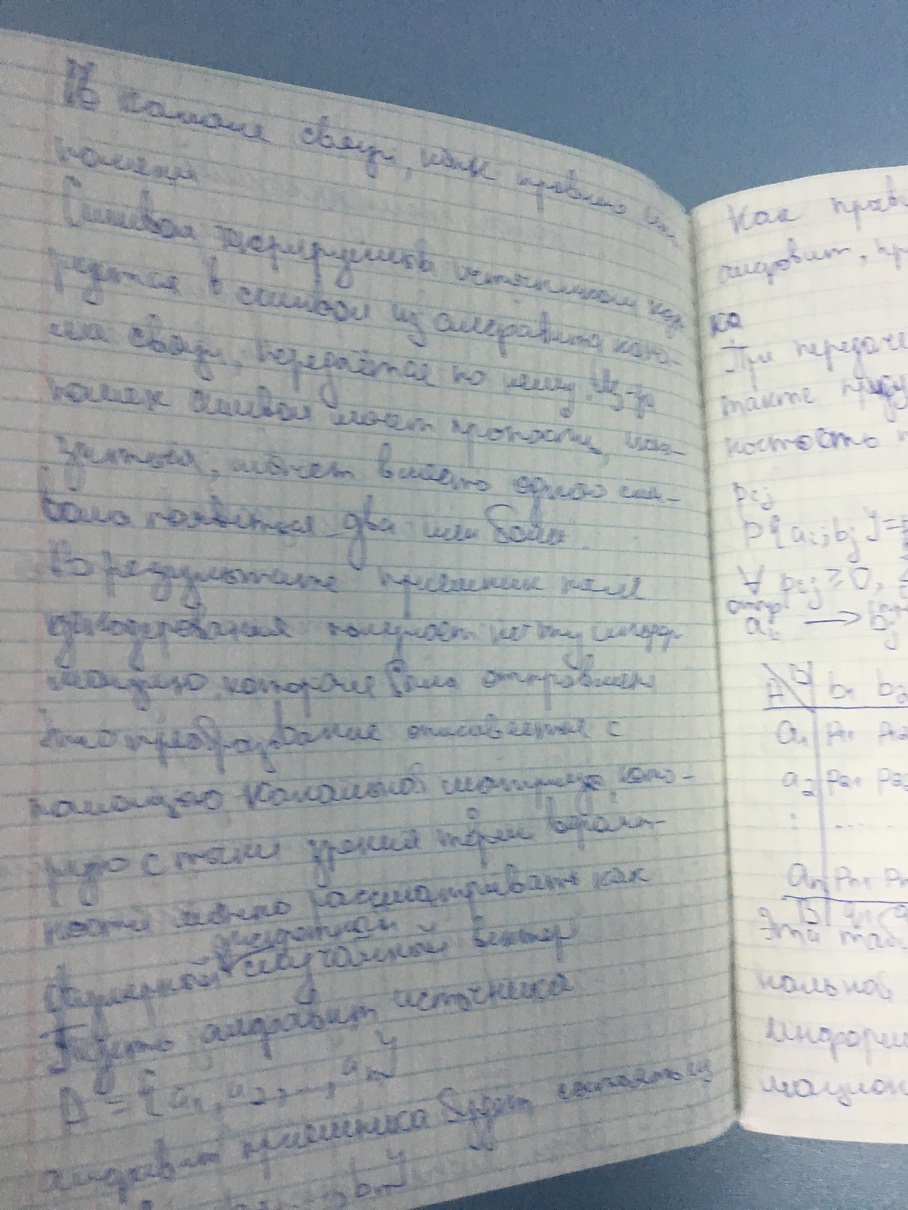 В канале связи, как правило есть
помехи
Символ генерируется источником коди-
руется в символ из алфавита кана-
ла связи, передаётся по нему. Из-за
помех символ может пропасть, иска-
зиться, может вместо одного сим-
вола появиться два или более.
В результате приемник после
декодирования получает не ту инфор-
мацию, которая была отправлена
Это преобразование описывается с
помощью канальной матрицы, кото-
рую с точки зрения теории вероят-
ности можно рассматривать как
двумерный дискретный случайный вектор
Пусть алфавит источника
A = {a₁, a₂, ..., aₙ}
алфавит приемника будет состоять из
..., bₙ}
Как прав
алфавит, пр
ка
При передаче
такте прису
ностью
pᵢⱼ
P{aᵢ, bⱼ} =
∀ pᵢⱼ ≥ 0,
отпр
aᵢ → bⱼ
A\B b₁ b₂
a₁ p₁₁ p₁₂
a₂ p₂₁ p₂₂
: ....
aₙ pₙ₁ pₙ
B q₁ q
Эта таб
нальной
информ
мацион